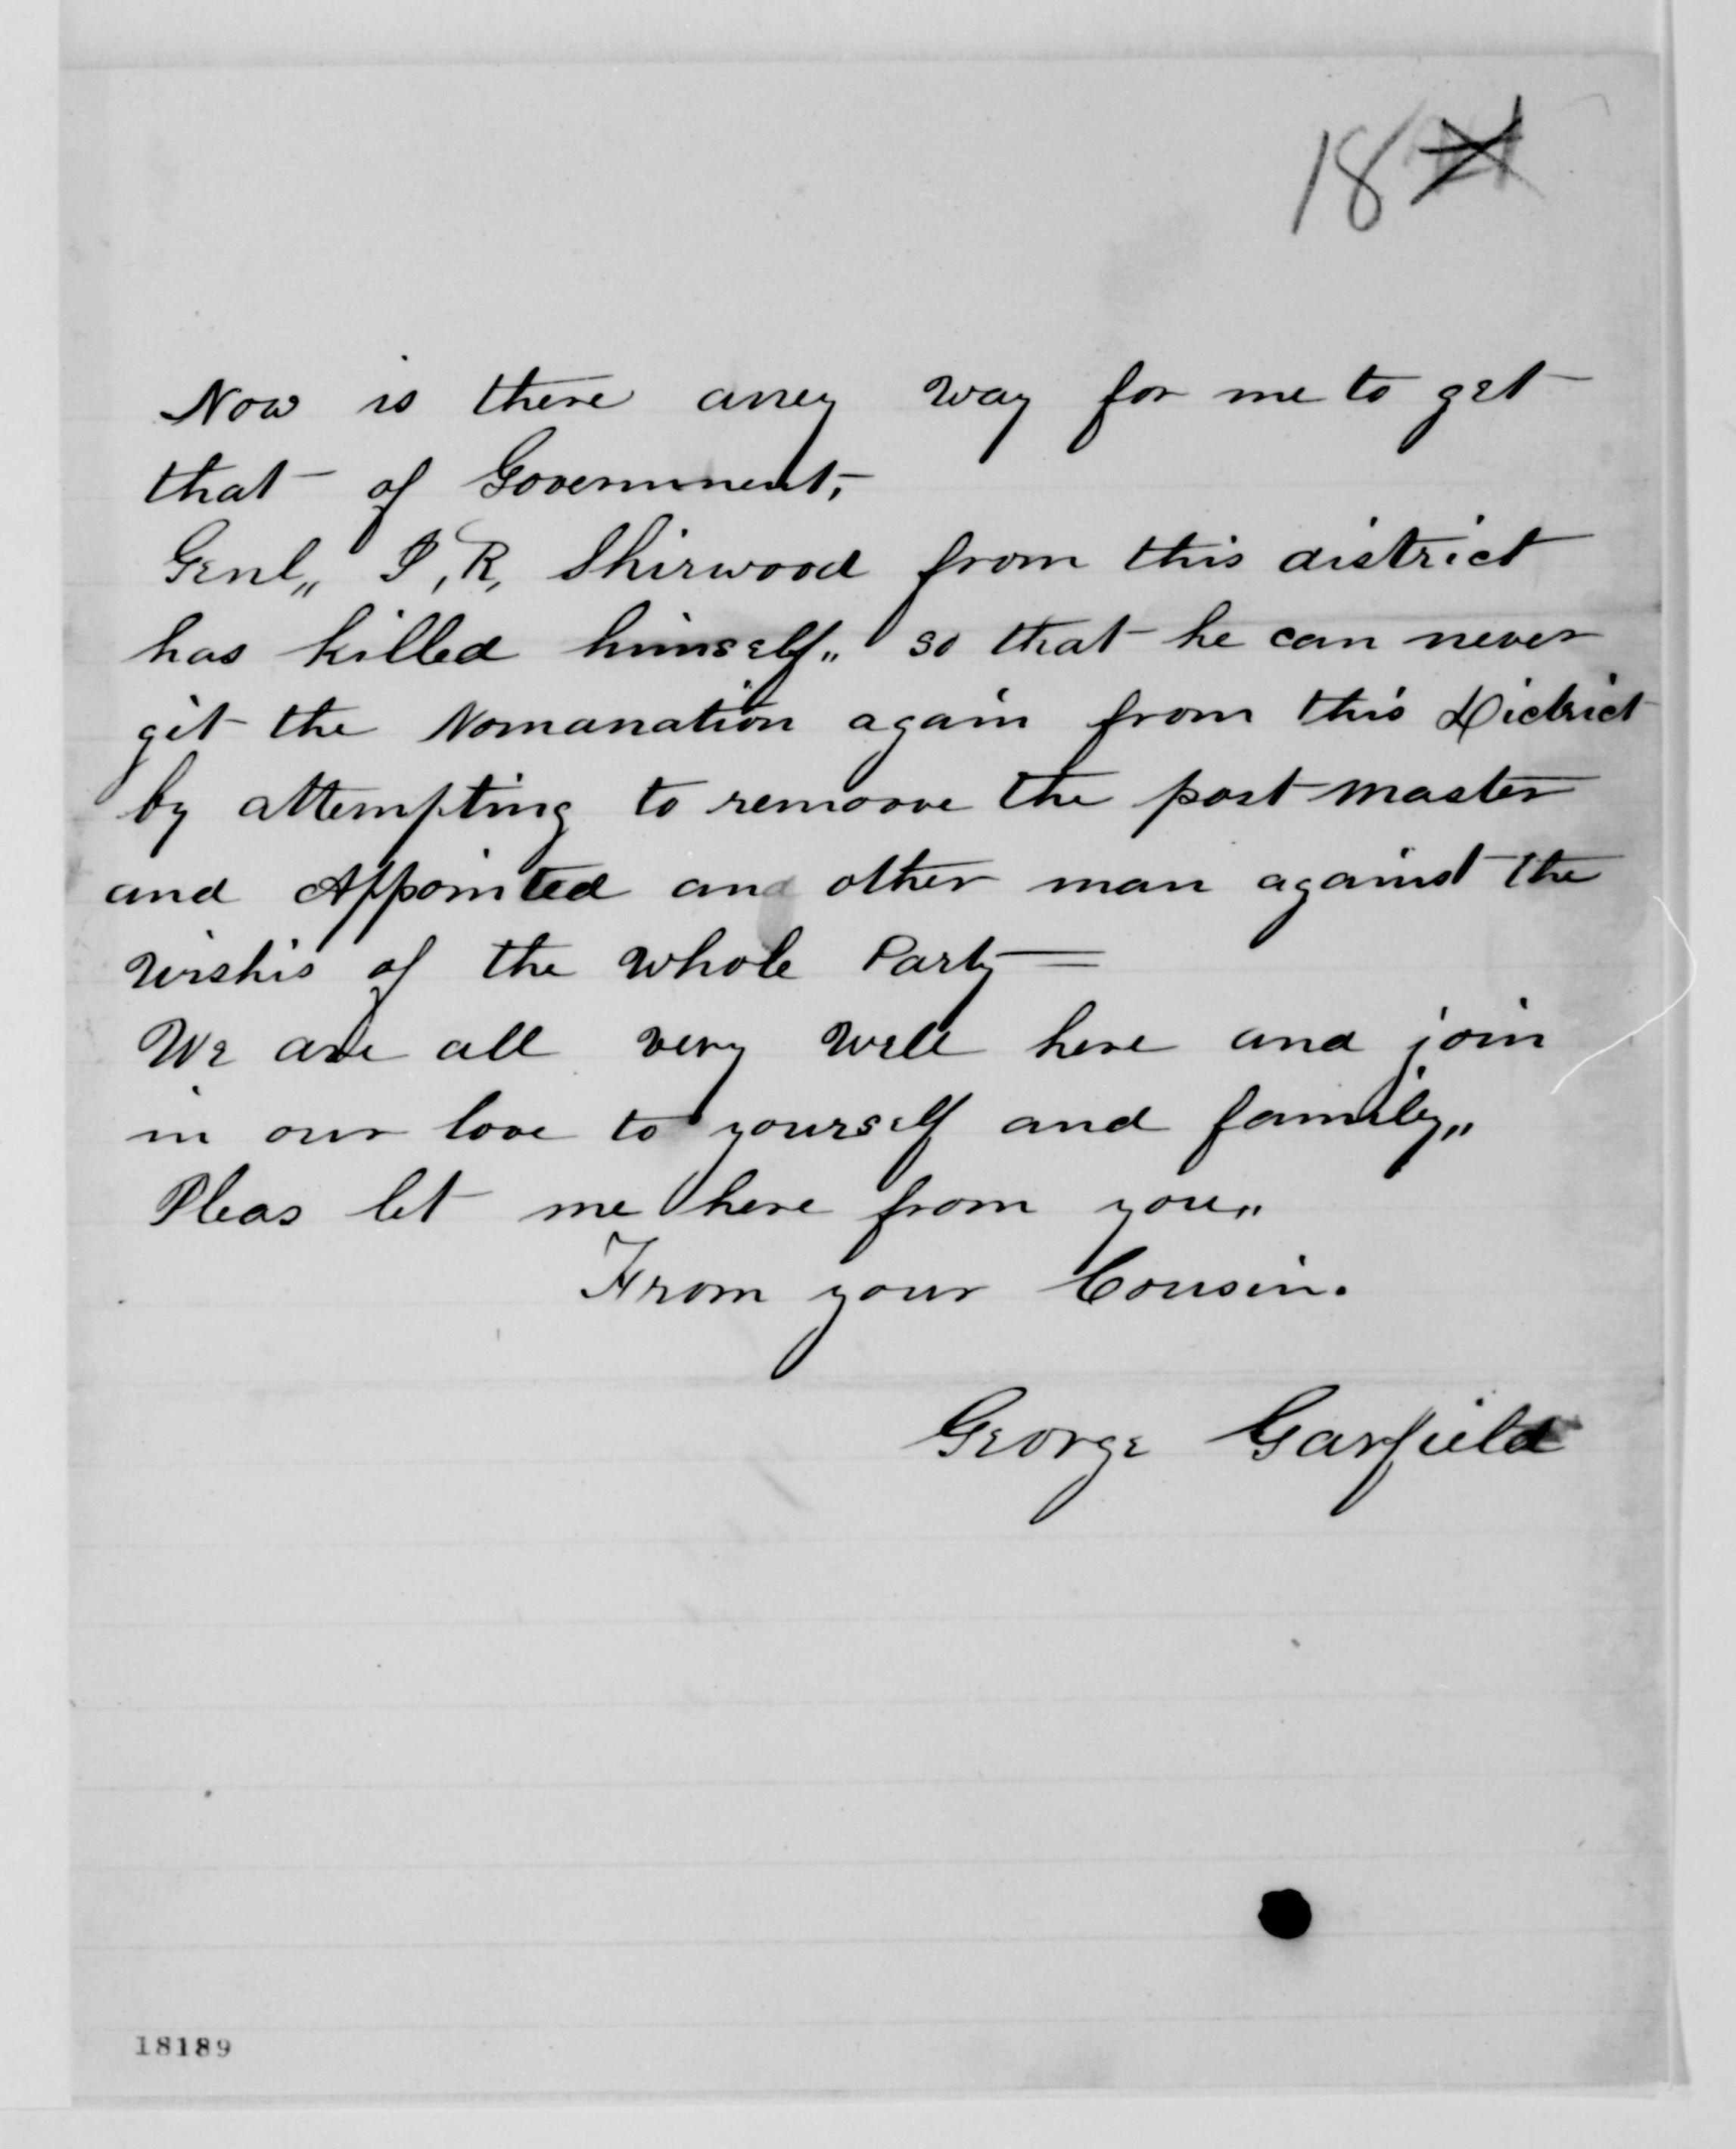 18
Now is there aney way for me to get
that of Government,
Genl,, I, R, Shirwood from this district
has killed himself,, so that he can never
git the Nomanation again from this District
by attempting to remoove the post master
and Appointed an other man against the
wishis of the whole Party =
We are all very well here and join
in our love to yourself and family,,
Pleas let me here from you,,
From your Cousin.
George Garfield
18189